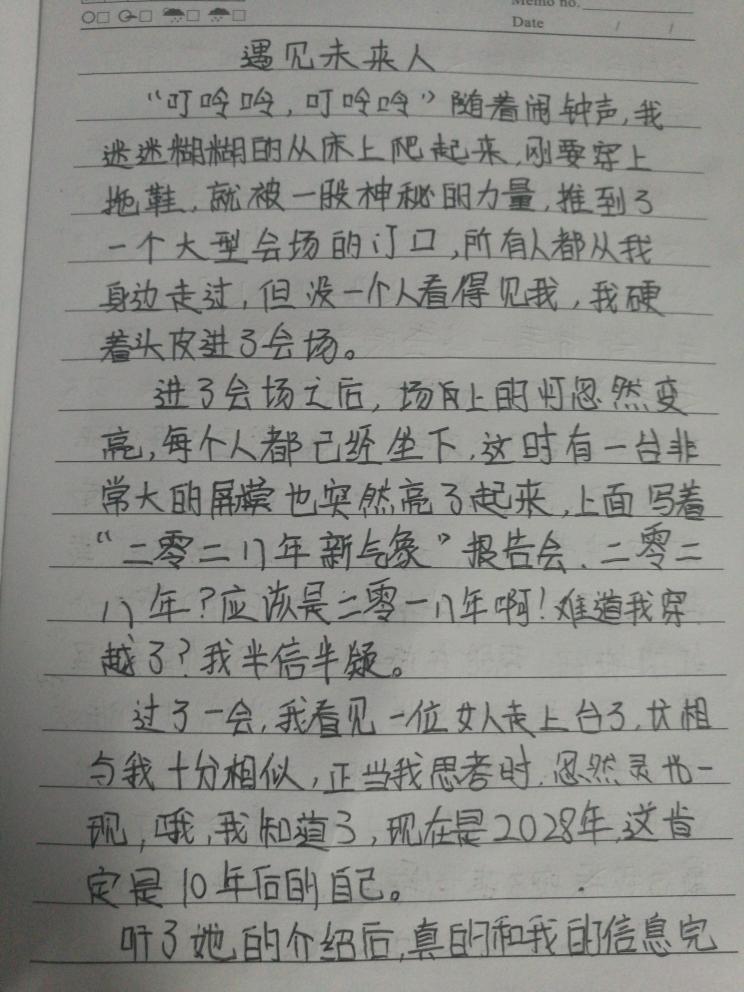 Memo no.
Date / /
遇见未来人
“叮呤呤，叮呤呤”随着闹钟声，我
迷迷糊糊的从床上爬起来，刚要穿上
拖鞋，就被一股神秘的力量，推到了
一个大型会场的订口，所有人都从我
身边走过，但没一个人看得见我，我硬
着头皮进了会场。
进了会场之后，场上的灯忽然变
亮，每个人都已经坐下，这时有一台非
常大的屏幕也突然亮了起来，上面写着
“二零二八年新气象”报告会、二零二
八年？应该是二零一八年啊！难道我穿
越了？我半信半疑。
过了一会，我看见一位女人走上台了，长相
与我十分相似，正当我思考时，忽然灵光一
现，哦，我知道了，现在是2028年，这肯
定是10年后的自己。
听了她的介绍后，真的和我的信息完